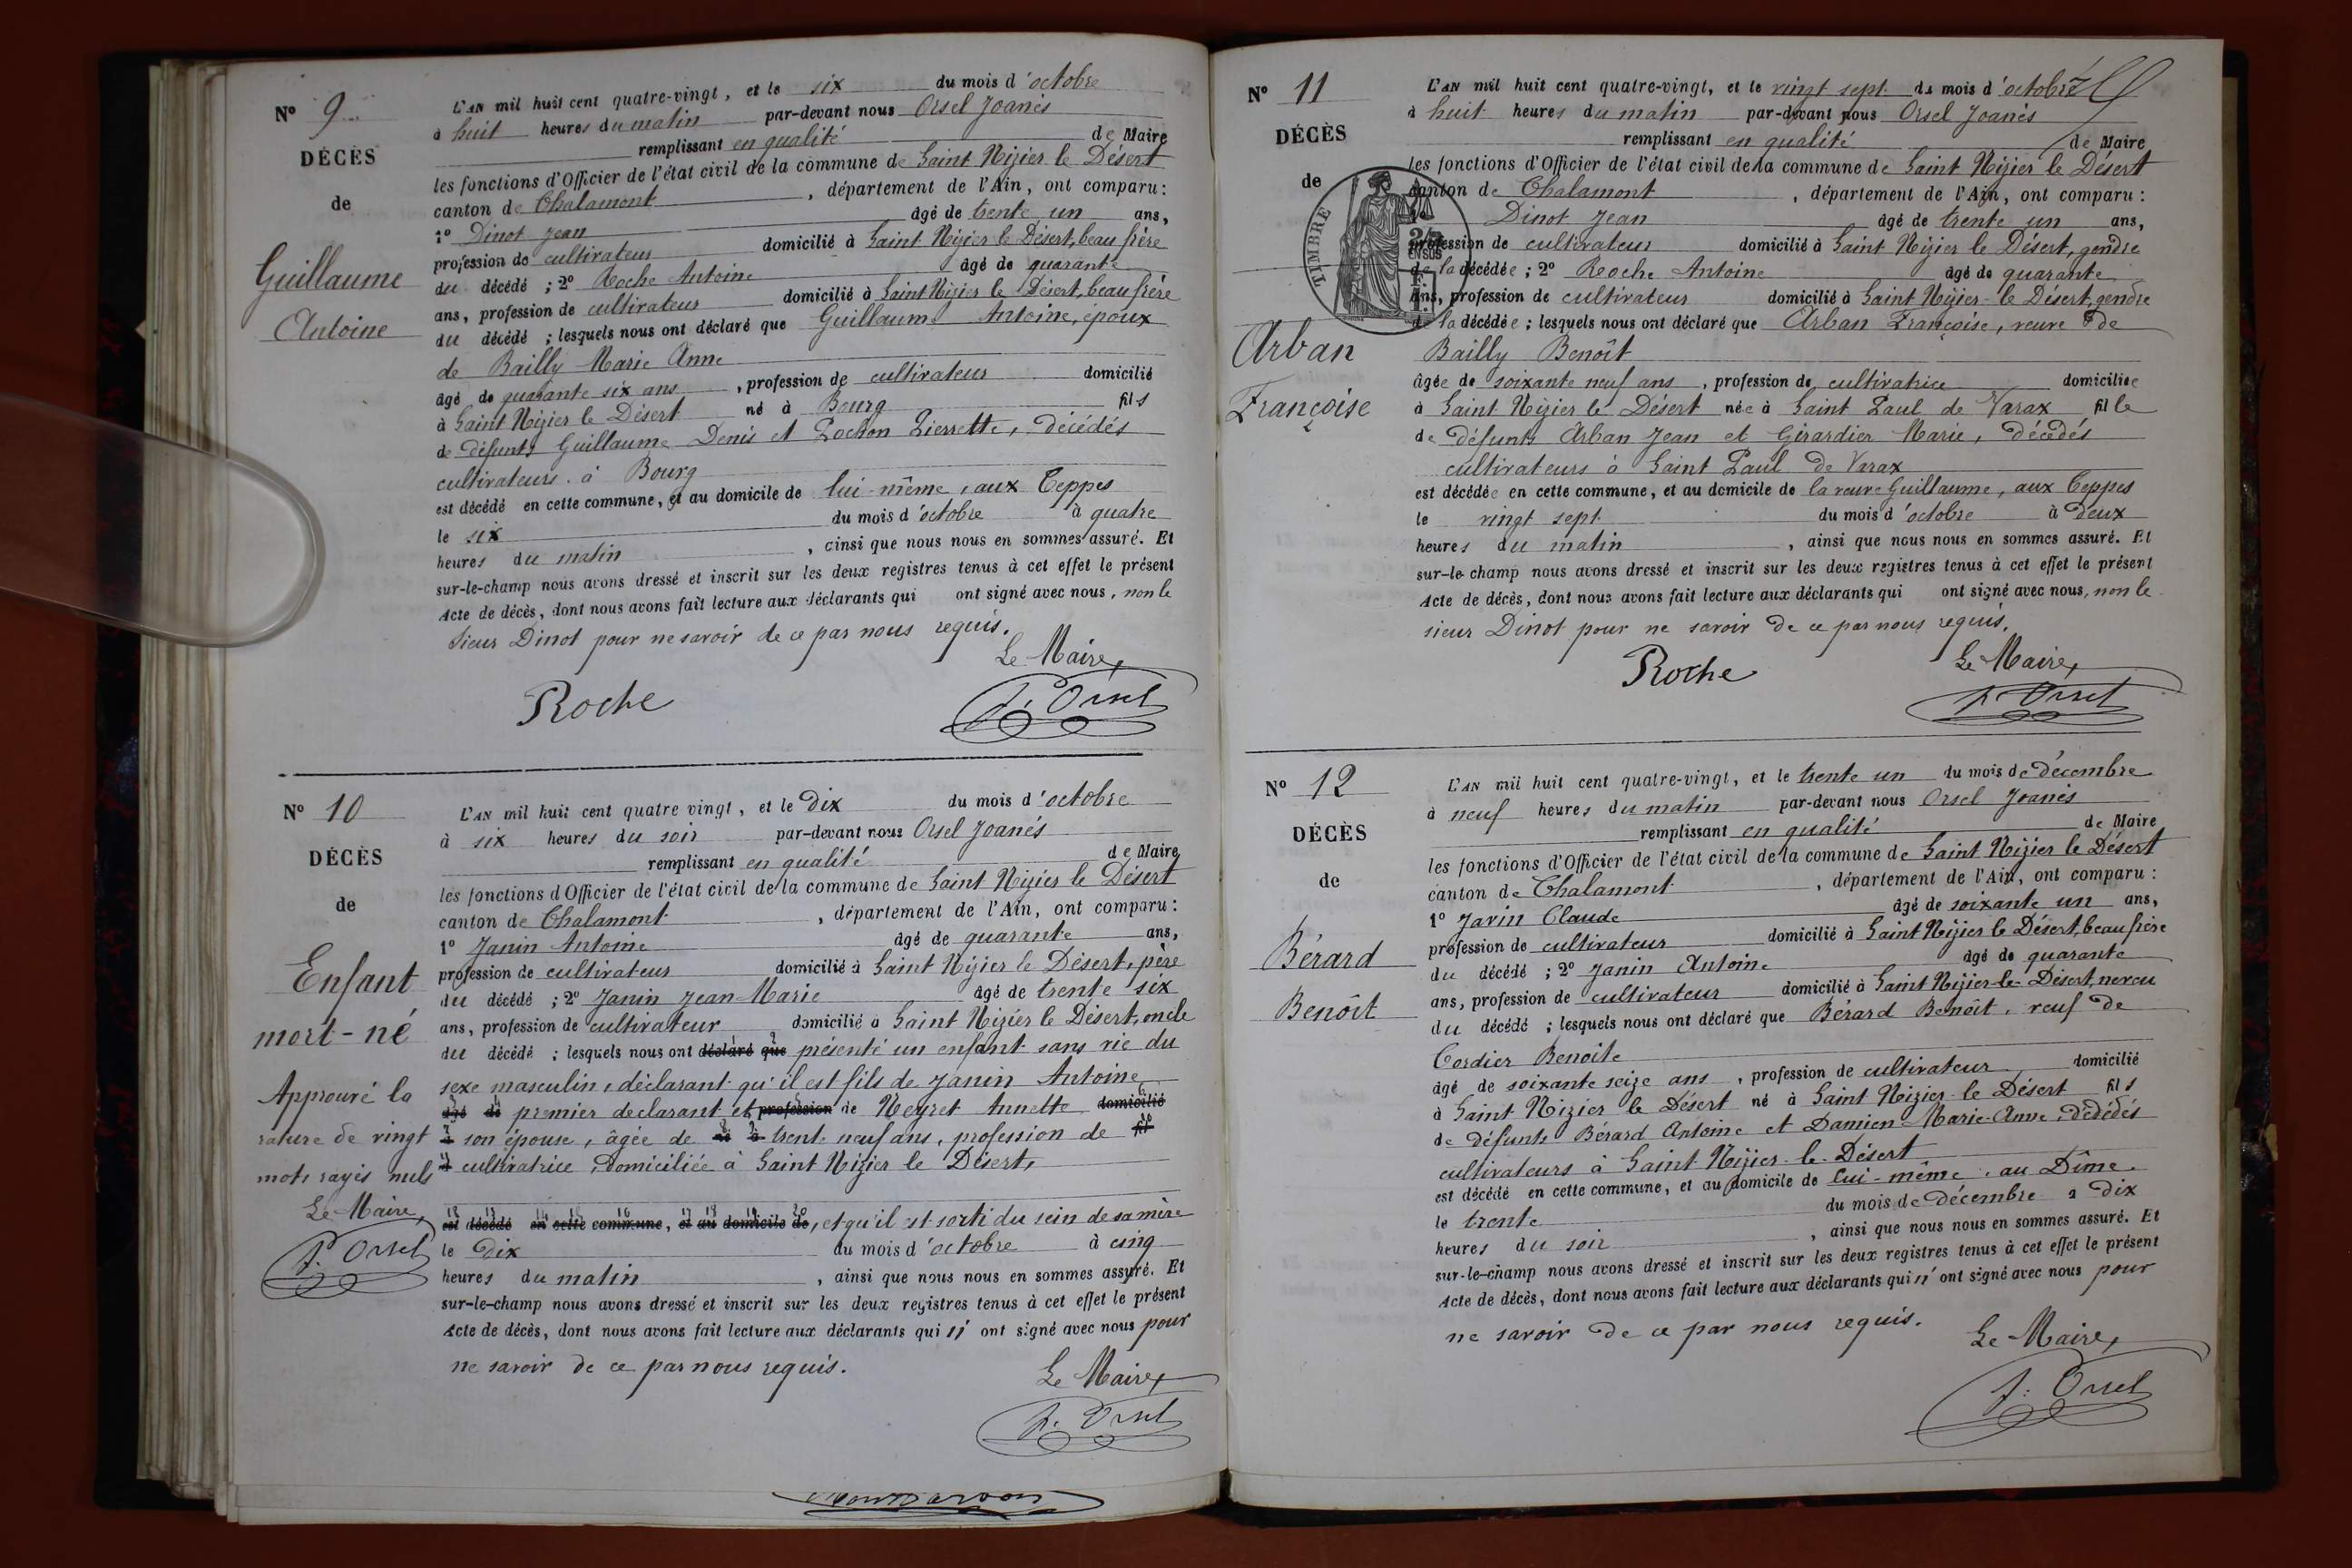 N° 9
DÉCÈS
de
Guillaume
Antoine
L'AN mil huit cent quatre-vingt, et le six du mois d'octobre
à huit heures du matin par-devant nous Orsel Joanès
remplissant en qualité de Maire
les fonctions d'Officier de l'état civil de la commune de Saint Nizier le Désert
canton de Chalamont, département de l'Ain, ont comparu :
1° Dinot Jean âgé de trente un ans,
profession de cultivateur domicilié à Saint Nizier le Désert, beau frère
du décédé ; 2° Roche Antoine âgé de quarante
ans, profession de cultivateur domicilié à Saint Nizier le Désert, beau frère
du décédé ; lesquels nous ont déclaré que Guillaume Antoine, époux
de Bailly Marie Anne
âgé de quarante six ans, profession de cultivateur domicilié
à Saint Nizier le Désert né à Bourg fils
de défunts Guillaume Denis et Pochon Pierrette, décédés
cultivateurs à Bourg
est décédé en cette commune, et au domicile de lui-même, aux Teppes
le six du mois d'octobre à quatre
heures du matin, ainsi que nous nous en sommes assuré. Et
sur-le-champ nous avons dressé et inscrit sur les deux registres tenus à cet effet le présent
Acte de décès, dont nous avons fait lecture aux déclarants qui ont signé avec nous, non le
sieur Dinot pour ne savoir de ce par nous requis.
Le Maire,
Roche
J. Orsel
N° 10
DÉCÈS
de
Enfant
mort-né
Approuvé la
rature de vingt
mots rayés nuls
Le Maire,
J. Orsel
L'AN mil huit cent quatre vingt, et le dix du mois d'octobre
à six heures du soir par-devant nous Orsel Joanès
remplissant en qualité de Maire
les fonctions d'Officier de l'état civil de la commune de Saint Nizier le Désert
canton de Chalamont, département de l'Ain, ont comparu :
1° Janin Antoine âgé de quarante ans,
profession de cultivateur domicilié à Saint Nizier le Désert, père
du décédé ; 2° Janin Jean-Marie âgé de trente six
ans, profession de cultivateur domicilié à Saint Nizier le Désert, oncle
du décédé ; lesquels nous ont déclaré que présenté un enfant sans vie du
sexe masculin, déclarant qu'il est fils de Janin Antoine
âgé de premier déclarant et profession de Neyret Annette domicilié
à son épouse, âgée de né à trente neuf ans, profession de fil
de cultivatrice, domiciliée à Saint Nizier le Désert,
est décédé en cette commune, et au domicile de, et qu'il est sorti du sein de sa mère
le dix du mois d'octobre à cinq
heures du matin, ainsi que nous nous en sommes assuré. Et
sur-le-champ nous avons dressé et inscrit sur les deux registres tenus à cet effet le présent
Acte de décès, dont nous avons fait lecture aux déclarants qui n'ont signé avec nous pour
ne savoir de ce par nous requis.
Le Maire,
J. Orsel
N° 11
DÉCÈS
de
Arban
Françoise
TIMBRE
2/5
EN SUS
L'AN mil huit cent quatre-vingt, et le vingt sept du mois d'octobre
à huit heures du matin par-devant nous Orsel Joanès
remplissant en qualité de Maire
les fonctions d'Officier de l'état civil de la commune de Saint Nizier le Désert
canton de Chalamont, département de l'Ain, ont comparu :
1° Dinot Jean âgé de trente un ans,
profession de cultivateur domicilié à Saint Nizier le Désert, gendre
de la décédée ; 2° Roche Antoine âgé de quarante
ans, profession de cultivateur domicilié à Saint Nizier le Désert, gendre
de la décédée ; lesquels nous ont déclaré que Arban Françoise, veuve de
Bailly Benoît
âgée de soixante neuf ans, profession de cultivatrice domiciliée
à Saint Nizier le Désert née à Saint Paul de Varax fille
de défunts Arban Jean et Girardier Marie, décédés
cultivateurs à Saint Paul de Varax
est décédée en cette commune, et au domicile de la veuve Guillaume, aux Teppes
le vingt sept du mois d'octobre à deux
heures du matin, ainsi que nous nous en sommes assuré. Et
sur-le-champ nous avons dressé et inscrit sur les deux registres tenus à cet effet le présent
Acte de décès, dont nous avons fait lecture aux déclarants qui ont signé avec nous, non le
sieur Dinot pour ne savoir de ce par nous requis.
Le Maire,
Roche
J. Orsel
N° 12
DÉCÈS
de
Bérard
Benoît
L'AN mil huit cent quatre-vingt, et le trente un du mois de décembre
à neuf heures du matin par-devant nous Orsel Joanès
remplissant en qualité de Maire
les fonctions d'Officier de l'état civil de la commune de Saint Nizier le Désert
canton de Chalamont, département de l'Ain, ont comparu :
1° Javin Claude âgé de soixante un ans,
profession de cultivateur domicilié à Saint Nizier le Désert, beau frère
du décédé ; 2° Janin Antoine âgé de quarante
ans, profession de cultivateur domicilié à Saint Nizier-le-Désert, neveu
du décédé ; lesquels nous ont déclaré que Bérard Benoît, veuf de
Cordier Benoite
âgé de soixante seize ans, profession de cultivateur domicilié
à Saint Nizier le Désert né à Saint Nizier-le Désert fils
de défunts Bérard Antoine et Damien Marie-Anne, décédés
cultivateurs à Saint Nizier-le-Désert
est décédé en cette commune, et au domicile de lui-même, au Dîme
le trente du mois de décembre à dix
heures du soir, ainsi que nous nous en sommes assuré. Et
sur-le-champ nous avons dressé et inscrit sur les deux registres tenus à cet effet le présent
Acte de décès, dont nous avons fait lecture aux déclarants qui n'ont signé avec nous pour
ne savoir de ce par nous requis.
Le Maire,
J. Orsel